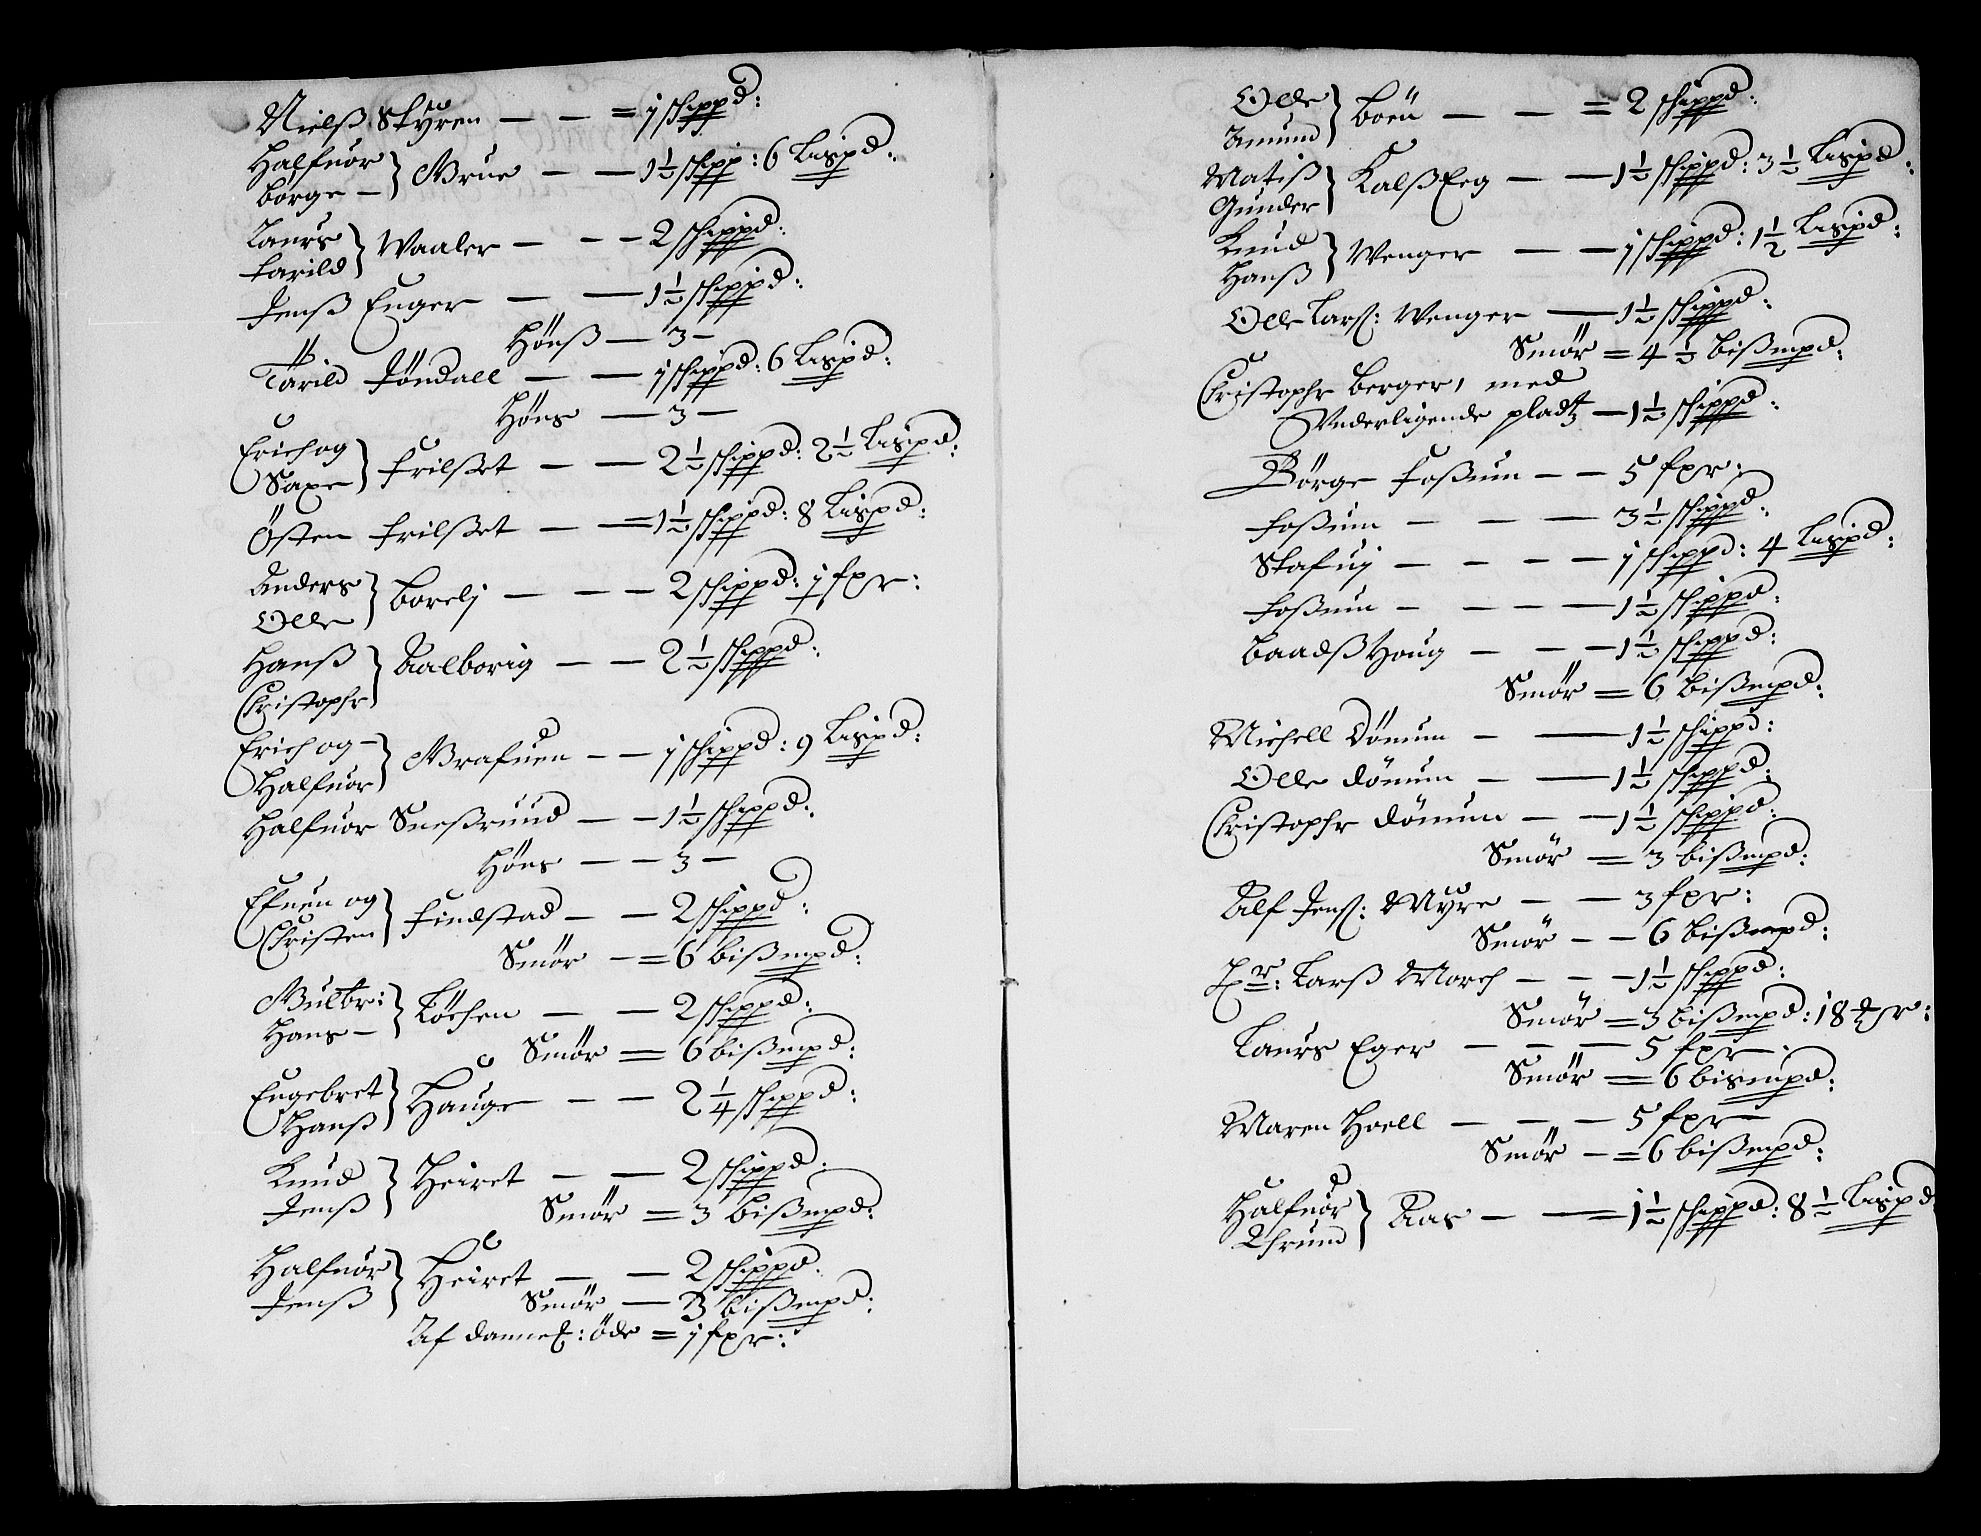 Nielß Skÿren — — = 1 schippd:
Halfuor
Borge — } Grue — — 1½ schipp: 6 Lispd:
Laurs
Tarild } Waaler — — — 2 schippd:
Jenß Enger — — 1½ schippd:
Hönß — 3 —
Tarild Jöndall — — 1 schippd: 6 Lispd:
Höns — 3 —
Erich og
Saxe } Frilßet — — 2½ schippd: 2½ Lispd:
Östen Frilßet — — 1½ schippd: 8 Lispd:
Anders
Olle } Borelj — — — 2 schippd: 1 fxr:
Hanß
Christophr } Aalborig — — 2½ schippd:
Erich og —
Halfuor } Grafuen — — 1 schippd: 9 Lispd:
Halfuor Sneßrund — — 1½ schippd:
Höns — — 3 —
Efuen og
Christen } Findstad — — 2 schippd:
Smör — = 6 bißmpd:
Gulbr:
Hans — } Löchen — — 2 schippd:
Smör = 6 bißmpd:
Engebret
Hanß } Hauge — — 2¼ schippd:
Knud
Jenß } Heiret — — 2 schippd:
Smör = 3 bißmpd:
Halfuor
Jenß } Heiret — — 2 schippd:
Smör — 3 bißmpd:
Af : öde = 1 fxr:
Olle
Amund } Boen — — = 2 schippd:
Matiß
Gunder } Kalß Eeg — — 1½ schippd: 3½ Lispd:
Knud
Hanß } Wenger — — 1 schippd: 1½ Lispd:
Olle Larß: Wenger — 1½ schippd:
Smör = 4½ bißmpd:
Christophr Berger, med
Vnderligende pladtz — 1½ schippd:
Börge Foßum — — 5 fxr:
Foßum — — — 3½ schippd:
Stafuj — — — — 1 schippd: 4 Lispd:
Foßum — — — — 1½ schippd:
Baadßhoug — — — 1½ schippd:
Smör = 6 bißmpd:
Michell Dömum — — 1½ schippd:
Olle dömum — — 1½ schippd:
Christophr dömum — — 1½ schippd:
Smör = 3 bißmpd:
Alf Jenß: Myre — — 3 fxr:
Smör — — 6 bißmpd:
Hr: Larß Morch — — — 1½ schippd:
Smör = 3 bißmpd: 18
Laurs Eger — — — 5 fxr
Smör = 6 bismpd:
Maren Hoell — — — 5 fxr
Smör — = 6 bißmpd:
Halfuor
Thrund } Aas — — = 1½ schippd: 8½ Lispd